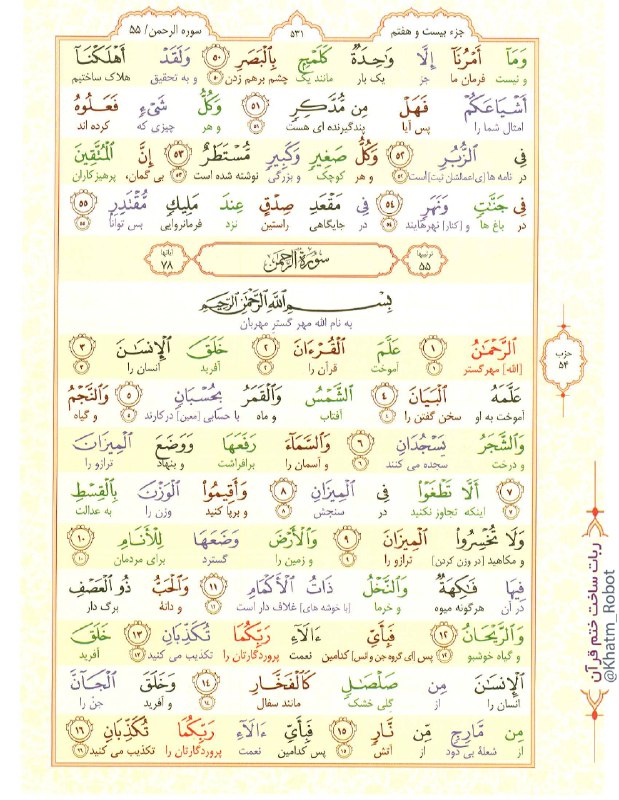 جزء بیست و هفتم
۵۳۱
سوره الرحمن/ ۵۵
وَمَآ أَمْرُنَآ إِلَّا وَٰحِدَةٌ كَلَمْحٍۭ بِٱلْبَصَرِ ۵۰ وَلَقَدْ أَهْلَكْنَآ
و نیست فرمان ما جز یک بار مانند یک چشم برهم زدن ۵۰ و به تحقیق هلاک ساختیم
أَشْيَاعَكُمْ فَهَلْ مِن مُّدَّكِرٍ ۵۱ وَكُلُّ شَىْءٍ فَعَلُوهُ
امثال شما را پس آیا پندگیرنده ای هست ۵۱ و هر چیزی که کرده اند
فِى ٱلزُّبُرِ ۵۲ وَكُلُّ صَغِيرٍ وَكَبِيرٍ مُّسْتَطَرٌ ۵۳ إِنَّ ٱلْمُتَّقِينَ
در نامه ها [ی اعمالشان ثبت] است ۵۲ و هر کوچک و بزرگی نوشته شده است ۵۳ بی گمان، پرهیزکاران
فِى جَنَّٰتٍ وَنَهَرٍ ۵۴ فِى مَقْعَدِ صِدْقٍ عِندَ مَلِيكٍ مُّقْتَدِرٍۭ ۵۵
در باغ ها و [کنار] نهرهایند ۵۴ در جایگاهی راستین نزد فرمانروایی پس توانا ۵۵
ترتیبها ۵۵
سُورَةُ الرَّحْمٰن
آیاتها ۷۸
بِسْمِ ٱللَّهِ ٱلرَّحْمَٰنِ ٱلرَّحِيمِ
به نام الله مهر گستر مهربان
ٱلرَّحْمَٰنُ ۱ عَلَّمَ ٱلْقُرْءَانَ ۲ خَلَقَ ٱلْإِنسَٰنَ ۳
[الله] مهرگستر ۱ آموخت قرآن را ۲ آفرید انسان را ۳
عَلَّمَهُ ٱلْبَيَانَ ۴ ٱلشَّمْسُ وَٱلْقَمَرُ بِحُسْبَانٍ ۵ وَٱلنَّجْمُ
آموخت به او سخن گفتن را ۴ آفتاب و ماه با حسابی [معین] در کارند ۵ و گیاه
وَٱلشَّجَرُ يَسْجُدَانِ ۶ وَٱلسَّمَآءَ رَفَعَهَا وَوَضَعَ ٱلْمِيزَانَ
و درخت سجده می کنند ۶ و آسمان را برافراشت و بنهاد ترازو را
۷ أَلَّا تَطْغَوْا۟ فِى ٱلْمِيزَانِ ۸ وَأَقِيمُوا۟ ٱلْوَزْنَ بِٱلْقِسْطِ
۷ اینکه تجاوز نکنید در سنجش ۸ و برپا کنید وزن را به عدالت
وَلَا تُخْسِرُوا۟ ٱلْمِيزَانَ ۹ وَٱلْأَرْضَ وَضَعَهَا لِلْأَنَامِ ۱۰
و مکاهید [در وزن کردن] ترازو را ۹ و زمین را گسترد برای مردمان ۱۰
فِيهَا فَٰكِهَةٌ وَٱلنَّخْلُ ذَاتُ ٱلْأَكْمَامِ ۱۱ وَٱلْحَبُّ ذُو ٱلْعَصْفِ
در آن هرگونه میوه و خرما [با خوشه های] غلاف دار است ۱۱ و دانهٔ برگ دار
وَٱلرَّيْحَانُ ۱۲ فَبِأَىِّ ءَالَآءِ رَبِّكُمَا تُكَذِّبَانِ ۱۳ خَلَقَ
و گیاه خوشبو ۱۲ پس [ای گروه جن و انس] کدامین نعمت پروردگارتان را تکذیب می کنید ۱۳ آفرید
ٱلْإِنسَٰنَ مِن صَلْصَٰلٍ كَٱلْفَخَّارِ ۱۴ وَخَلَقَ ٱلْجَآنَّ
انسان را از گلی خشک مانند سفال ۱۴ و آفرید جنّ را
مِن مَّارِجٍ مِّن نَّارٍ ۱۵ فَبِأَىِّ ءَالَآءِ رَبِّكُمَا تُكَذِّبَانِ ۱۶
از شعلهٔ بی دود از آتش ۱۵ پس کدامین نعمت پروردگارتان را تکذیب می کنید ۱۶
حزب ۵۴
ربات ساخت ختم قرآن
@Khatm_Robot